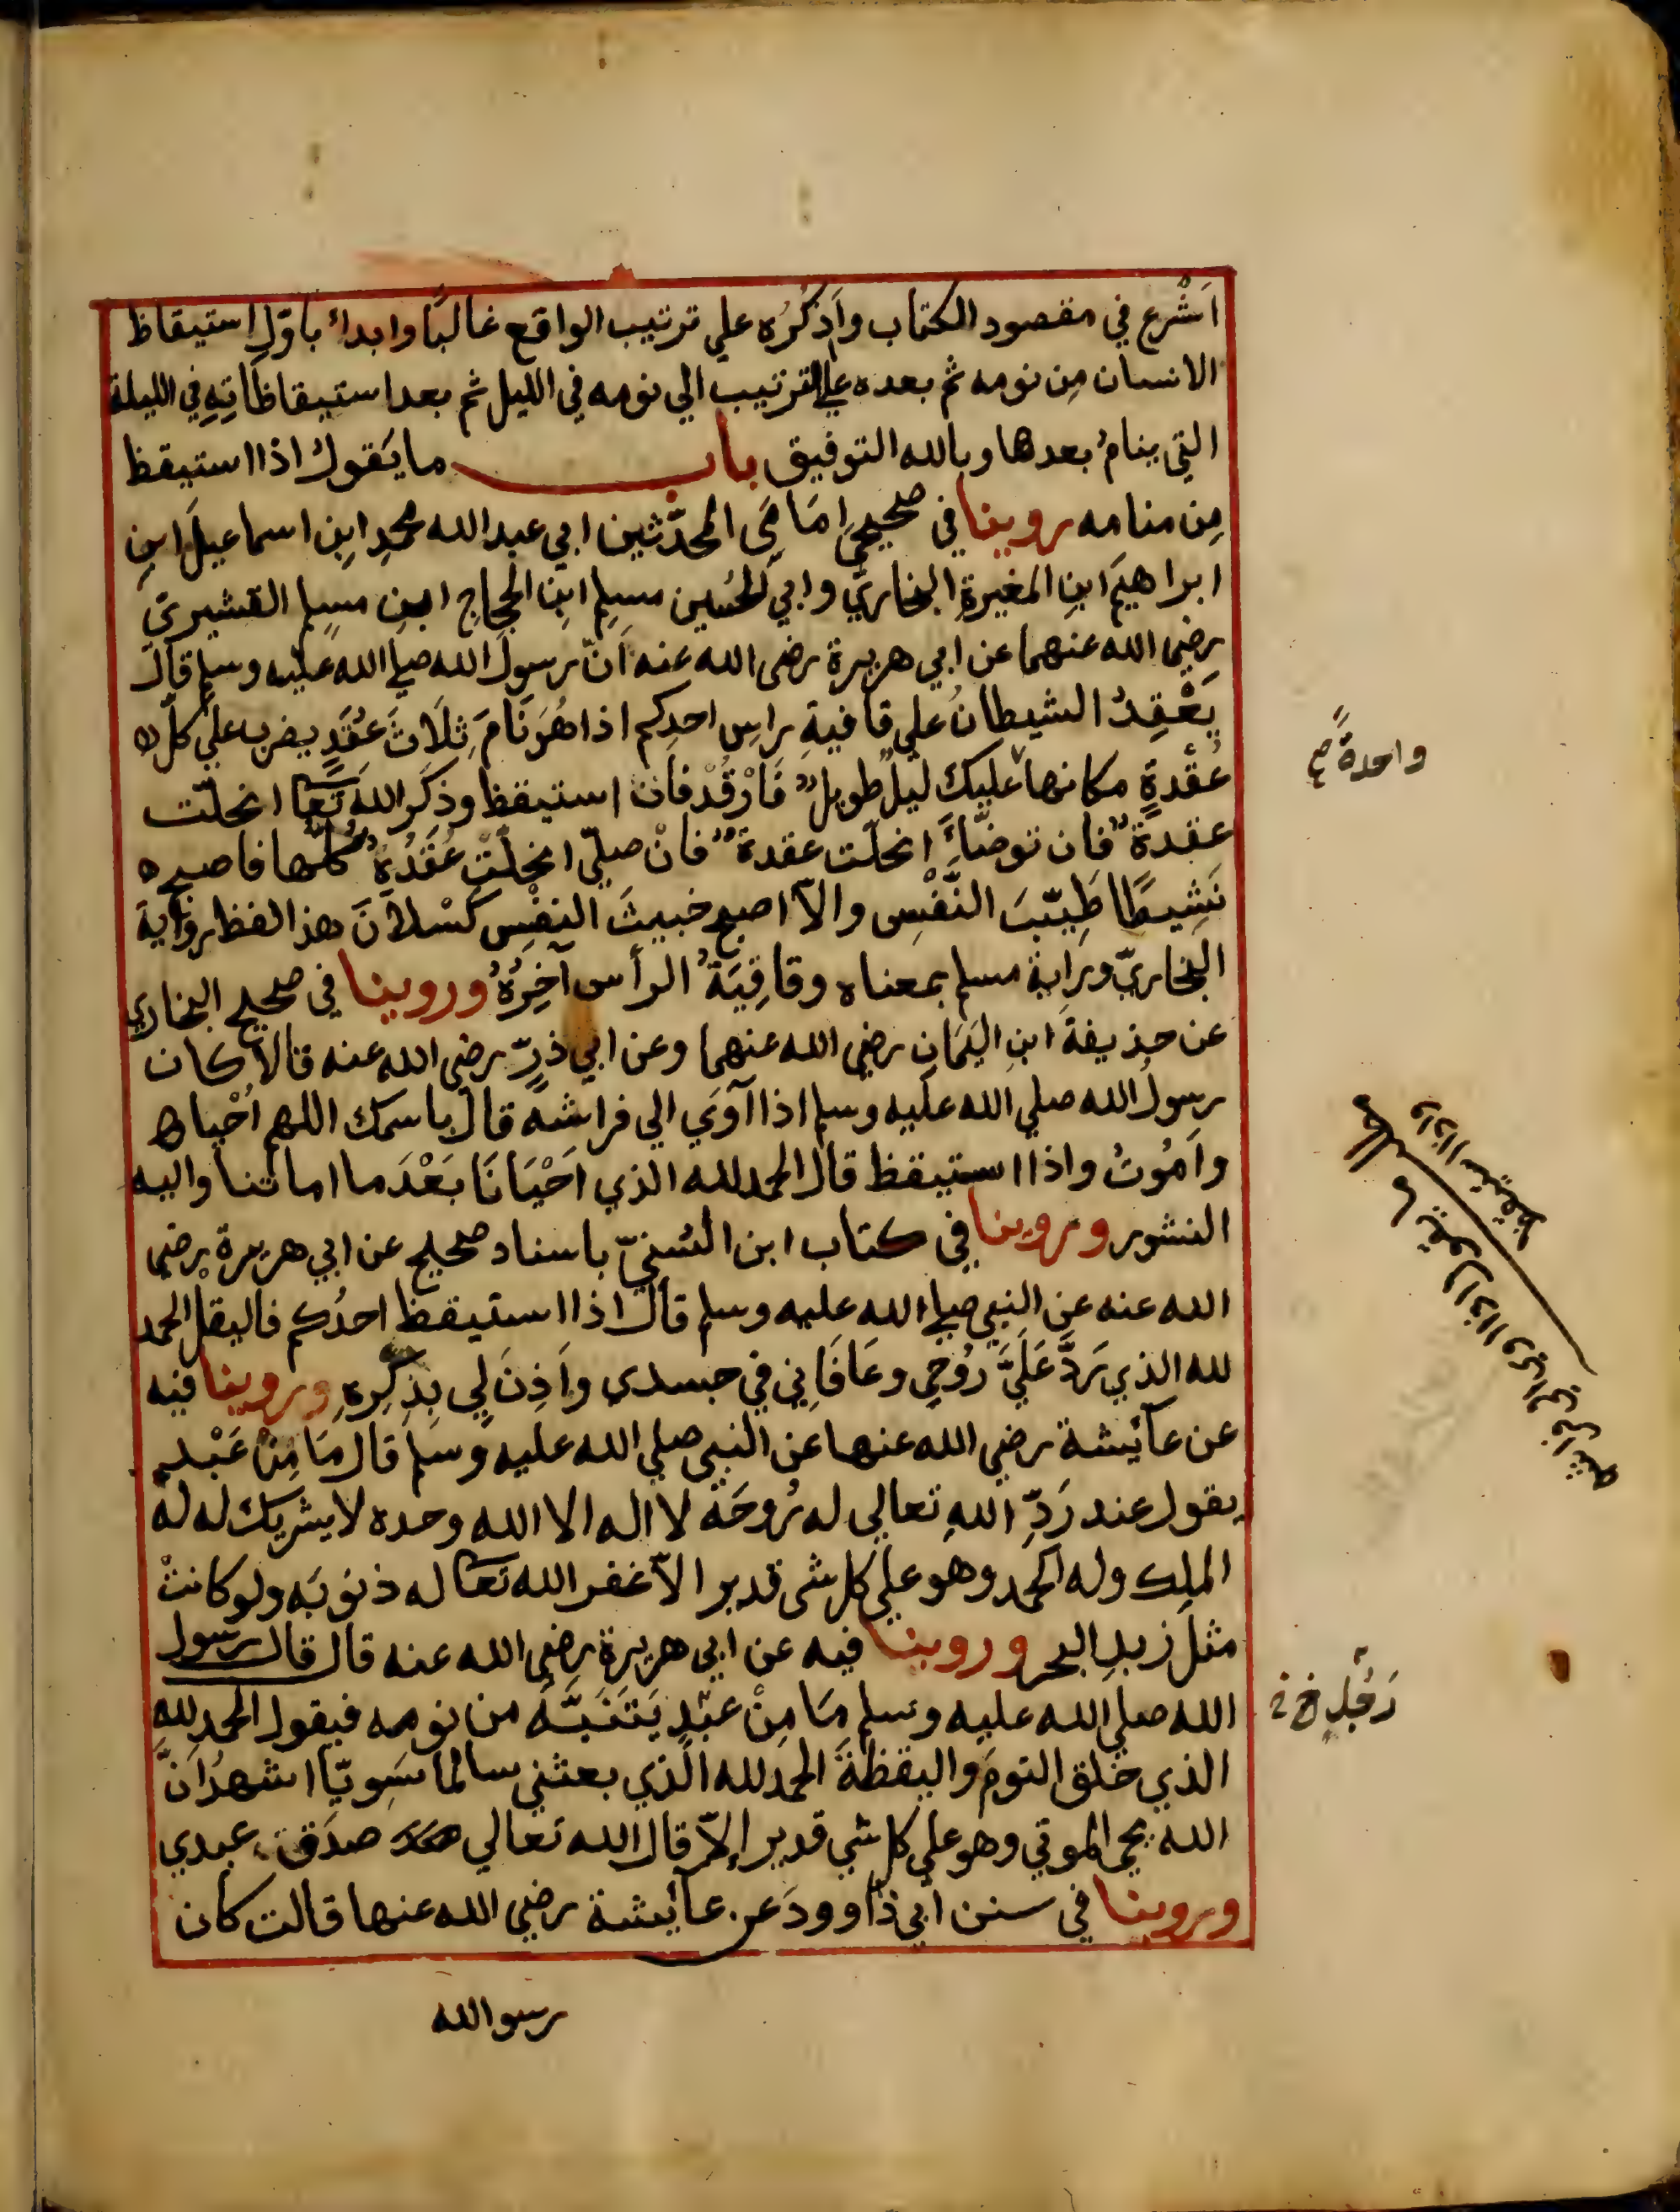 اَشْرع في مقصود الكتاب واَذكُرُه علي ترتيب الواقع غالبًا وابداء باوّلِ استيقاظ
الانسان مِن نومه ثم بعده علي الترتيب الي نومه في الليل ثم بعد استيقاظاتِهِ في الليلة
التي ينامُ بعدها وبالله التوفيق باب ما يَقول اذا استيقظ
مِن منامه روينا في صحيحَي اِمَامَي المحدّثين ابي عبد الله محمدِ ابنِ اسماعيلَ ابنِ
ابراهيمَ ابنِ المغيرةِ البخاريِّ وابي الحُسين مسلِمِ ابنِ الحجاجِ ابنِ مسلِم القشيريِّ
رضي الله عنهما عن ابي هريرة رضي الله عنه اَنّ رسولَ الله صلي الله عليه وسلم قال
يَعْقِدُ الشيطانُ علي قافيةِ راسِ احدِكم اذا هُوَ نَامَ ثلَاثَ عُقَدٍ يضرب علي كلّ
عُقْدةٍ مكانها عليك ليلٌ طويلٌ فَارْقُدْ فان استيقظ وذكَر اللهَ تعا انحلّت
عقدةٌ فان توضّأَ انحلّت عقدةٌ فانْ صلّي انحلّتْ عُقَدُهُ كلّها فاصبح
نَشِيطًا طَيِّبَ النَّفْسِ والاّ اصبح خبيثَ النفْسِ كَسْلانَ هذا لفظ رواية
البخاريّ ورايةِ مسلم بمعناه وقافِيَةُ الرأس آخِرُهُ وروينا في صحيح البخاري
عن حذيفةَ ابنِ اليَمَانِ رضي الله عنهما وعن ابي ذرٍّ رضي الله عنه قالا كان
رسولُ الله صلي الله عليه وسلم اذا آوَي الي فراشه قال باسمك اللهم اَحْيا
واَمُوتُ واذا استيقظ قال الحمد لله الذي اَحْيَانَا بَعْدَ ما اماتنا واليه
النشور وروينا في كتاب ابن السُّنيّ باسناد صحيح عن ابي هريرة رضي
الله عنه عن النبي صلي الله عليه وسلم قال اذا استيقظ احدُكم فاليقلْ الحمد
لله الذي رَدَّ عَلَيَّ رُوُحِي وعَافَانِي في جسدي واَذِنَ لِي بِذِكْرِهِ وروينا فيه
عن عائيشة رضي الله عنها عن النبي صلي الله عليه وسلم قال مَا مِنْ عَبْدٍ
يقول عند رَدِّ اللهِ تعالي له رُوحَهُ لا اله الا الله وحده لا شريك له له
الملك وله الحمد وهو علي كل شي قدير الاّ غفر الله تعا له ذنوبَه ولو كانتْ
مثلَ زبدِ البحر وروينا فيه عن ابي هريرة رضي الله عنه قال قال رسول
الله صلي الله عليه وسلم مَا مِنْ عَبْدٍ يَتَنَبَّهُ من نومه فيقول الحمد للهِ
الذي خلق النومَ واليقظةَ الحمد لله الّذي بعثني سالما سَوِيّا اشهدُ اَنَّ
الله يحيي الموتي وهو علي كل شي قدير إلاّ قال الله تعالي صدَق عبدي
وروينا في سنن ابي داوود عن عائيشة رضي الله عنها قالت كان
رسو الله
واحدةً صح
رَجُلٍ خ